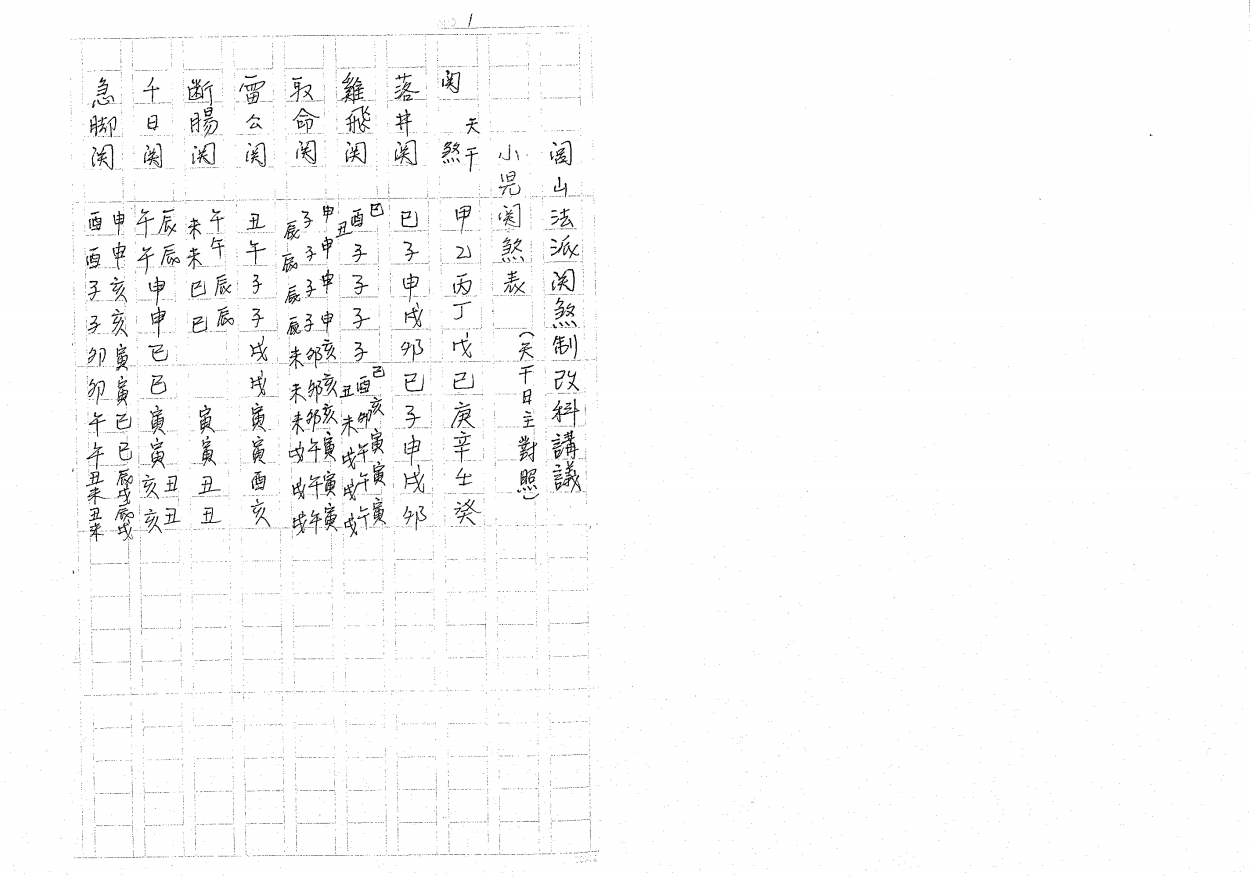 NO. 1
閭山法派関煞制改科講議
小児関煞表 (天干日主對照)
関煞 天干 甲乙丙丁戊己庚辛壬癸
落井関 巳子申戌卯巳子申戌卯
雞飛関 巳酉丑 子 子 子 子 巳酉丑 亥卯未 寅午戌 寅午戌 寅午戌
取命関 申子辰 申子辰 申子辰 申子辰 亥卯未 亥卯未 亥卯未 寅午戌 寅午戌 寅午戌
雷公関 丑午子子戌戌寅寅酉亥
断腸関 午未 午未 辰巳 辰巳 寅 寅 丑 丑
千日関 辰午 辰午 申 申 巳 巳 寅 寅 丑亥 丑亥
急脚関 申酉 申酉 亥子 亥子 寅卯 寅卯 巳午 巳午 辰戌丑未 辰戌丑未